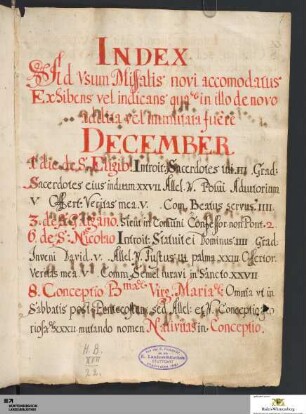 INDEX
Ad Vsum Missalis novi accomodatus
Exhibens vel indicans quæ in illo de novo
addita vel immutata fuere
DECEMBER.
1. die de S. Eligio. Introit: Sacerdotes tui III Grad:
Sacerdotes eius induam XXVII. Allel. V. Posui Adiutorium
V Offert: Veritas mea. V. Com. Beatus servus IIII.
3. de Sicut in comuni Confessor: non Pont. 2.
6. de S. Nicolao Introit Statuit ei Dominus IIII Grad
Inveni David. V. Allel. V. Justus ut palma XXIII Offerior.
Veritas mea V. Comm. Semel iuravi in Sancto XXVII
8. Conceptio B. Virg. Mariæ Omnia ut in
Sabbatis post Pentecostum, sed Allel: et V. Conceptio
riosæ XXXII mutando nomen Nativitas in Conceptio.
H.B.
XVII
22.